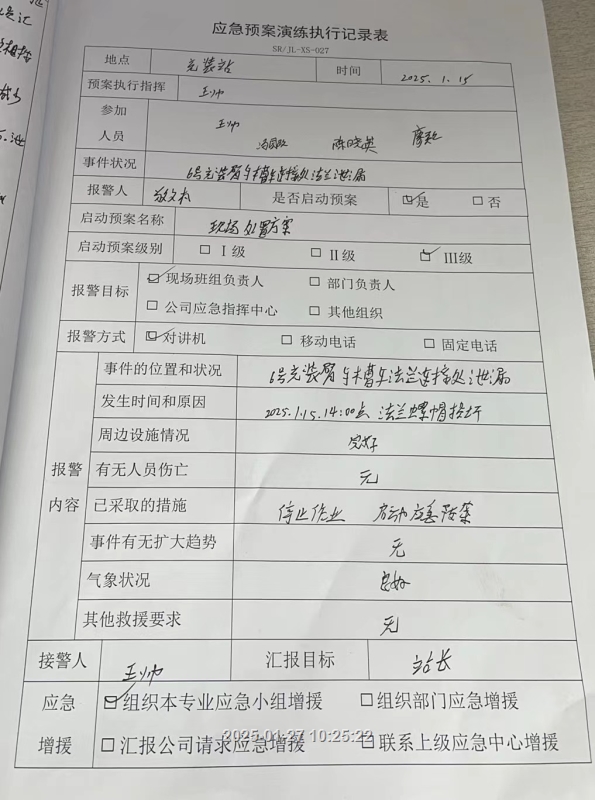 应急预案演练执行记录表
SR/JL-XS-027
地点 充装站 时间 2025.1.15
预案执行指挥 王帅
参加人员 王帅 陈晓英
事件状况 6号充装臂与槽车连接处法兰泄漏
报警人 是否启动预案 ☑是 □否
启动预案名称 现场处置方案
启动预案级别 □Ⅰ级 □Ⅱ级 ☑Ⅲ级
报警目标 ☑现场班组负责人 □部门负责人
□公司应急指挥中心 □其他组织
报警方式 ☑对讲机 □移动电话 □固定电话
报警内容
事件的位置和状况 6号充装臂与槽车法兰连接处泄漏
发生时间和原因 2025.1.15.14:00点 法兰螺帽损坏
周边设施情况 完好
有无人员伤亡 无
已采取的措施 停止作业 启动应急预案
事件有无扩大趋势 无
气象状况 良好
其他救援要求 无
接警人 王帅 汇报目标 站长
应急增援
☑组织本专业应急小组增援 □组织部门应急增援
□汇报公司请求应急增援 □联系上级应急中心增援
2025-01-27 10:25:22